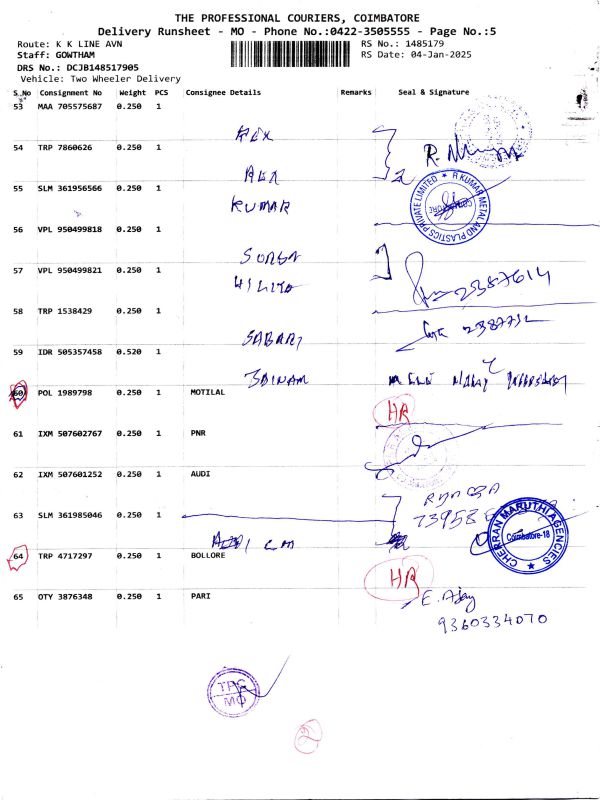 THE PROFESSIONAL COURIERS, COIMBATORE
Delivery Runsheet - MO - Phone No.:0422-3505555 - Page No.:5
Route: K K LINE AVN
RS No.: 1485179
Staff: GOWTHAM
RS Date: 04-Jan-2025
DRS No.: DCJB148517905
Vehicle: Two Wheeler Delivery
S.No Consignment No Weight PCS Consignee Details Remarks Seal & Signature
53 MAA 705575687 0.250 1
54 TRP 7860626 0.250 1
55 SLM 361956566 0.250 1
KUMAR
R KUMAR METAL AND PLASTICS PRIVATE LIMITED
56 VPL 950499818 0.250 1
57 VPL 950499821 0.250 1
23387614
58 TRP 1538429 0.250 1
SABARI
59 IDR 505357458 0.520 1
JAINAM
60 POL 1989798 0.250 1 MOTILAL
HR
61 IXM 507602767 0.250 1 PNR
62 IXM 507601252 0.250 1 AUDI
63 SLM 361985046 0.250 1
73958
CHERRAN MARUTHI AGENCIES
Coimbatore-18
64 TRP 4717297 0.250 1 BOLLORE
HR
65 OTY 3876348 0.250 1 PARI
E. Ajay
9360334070
MO